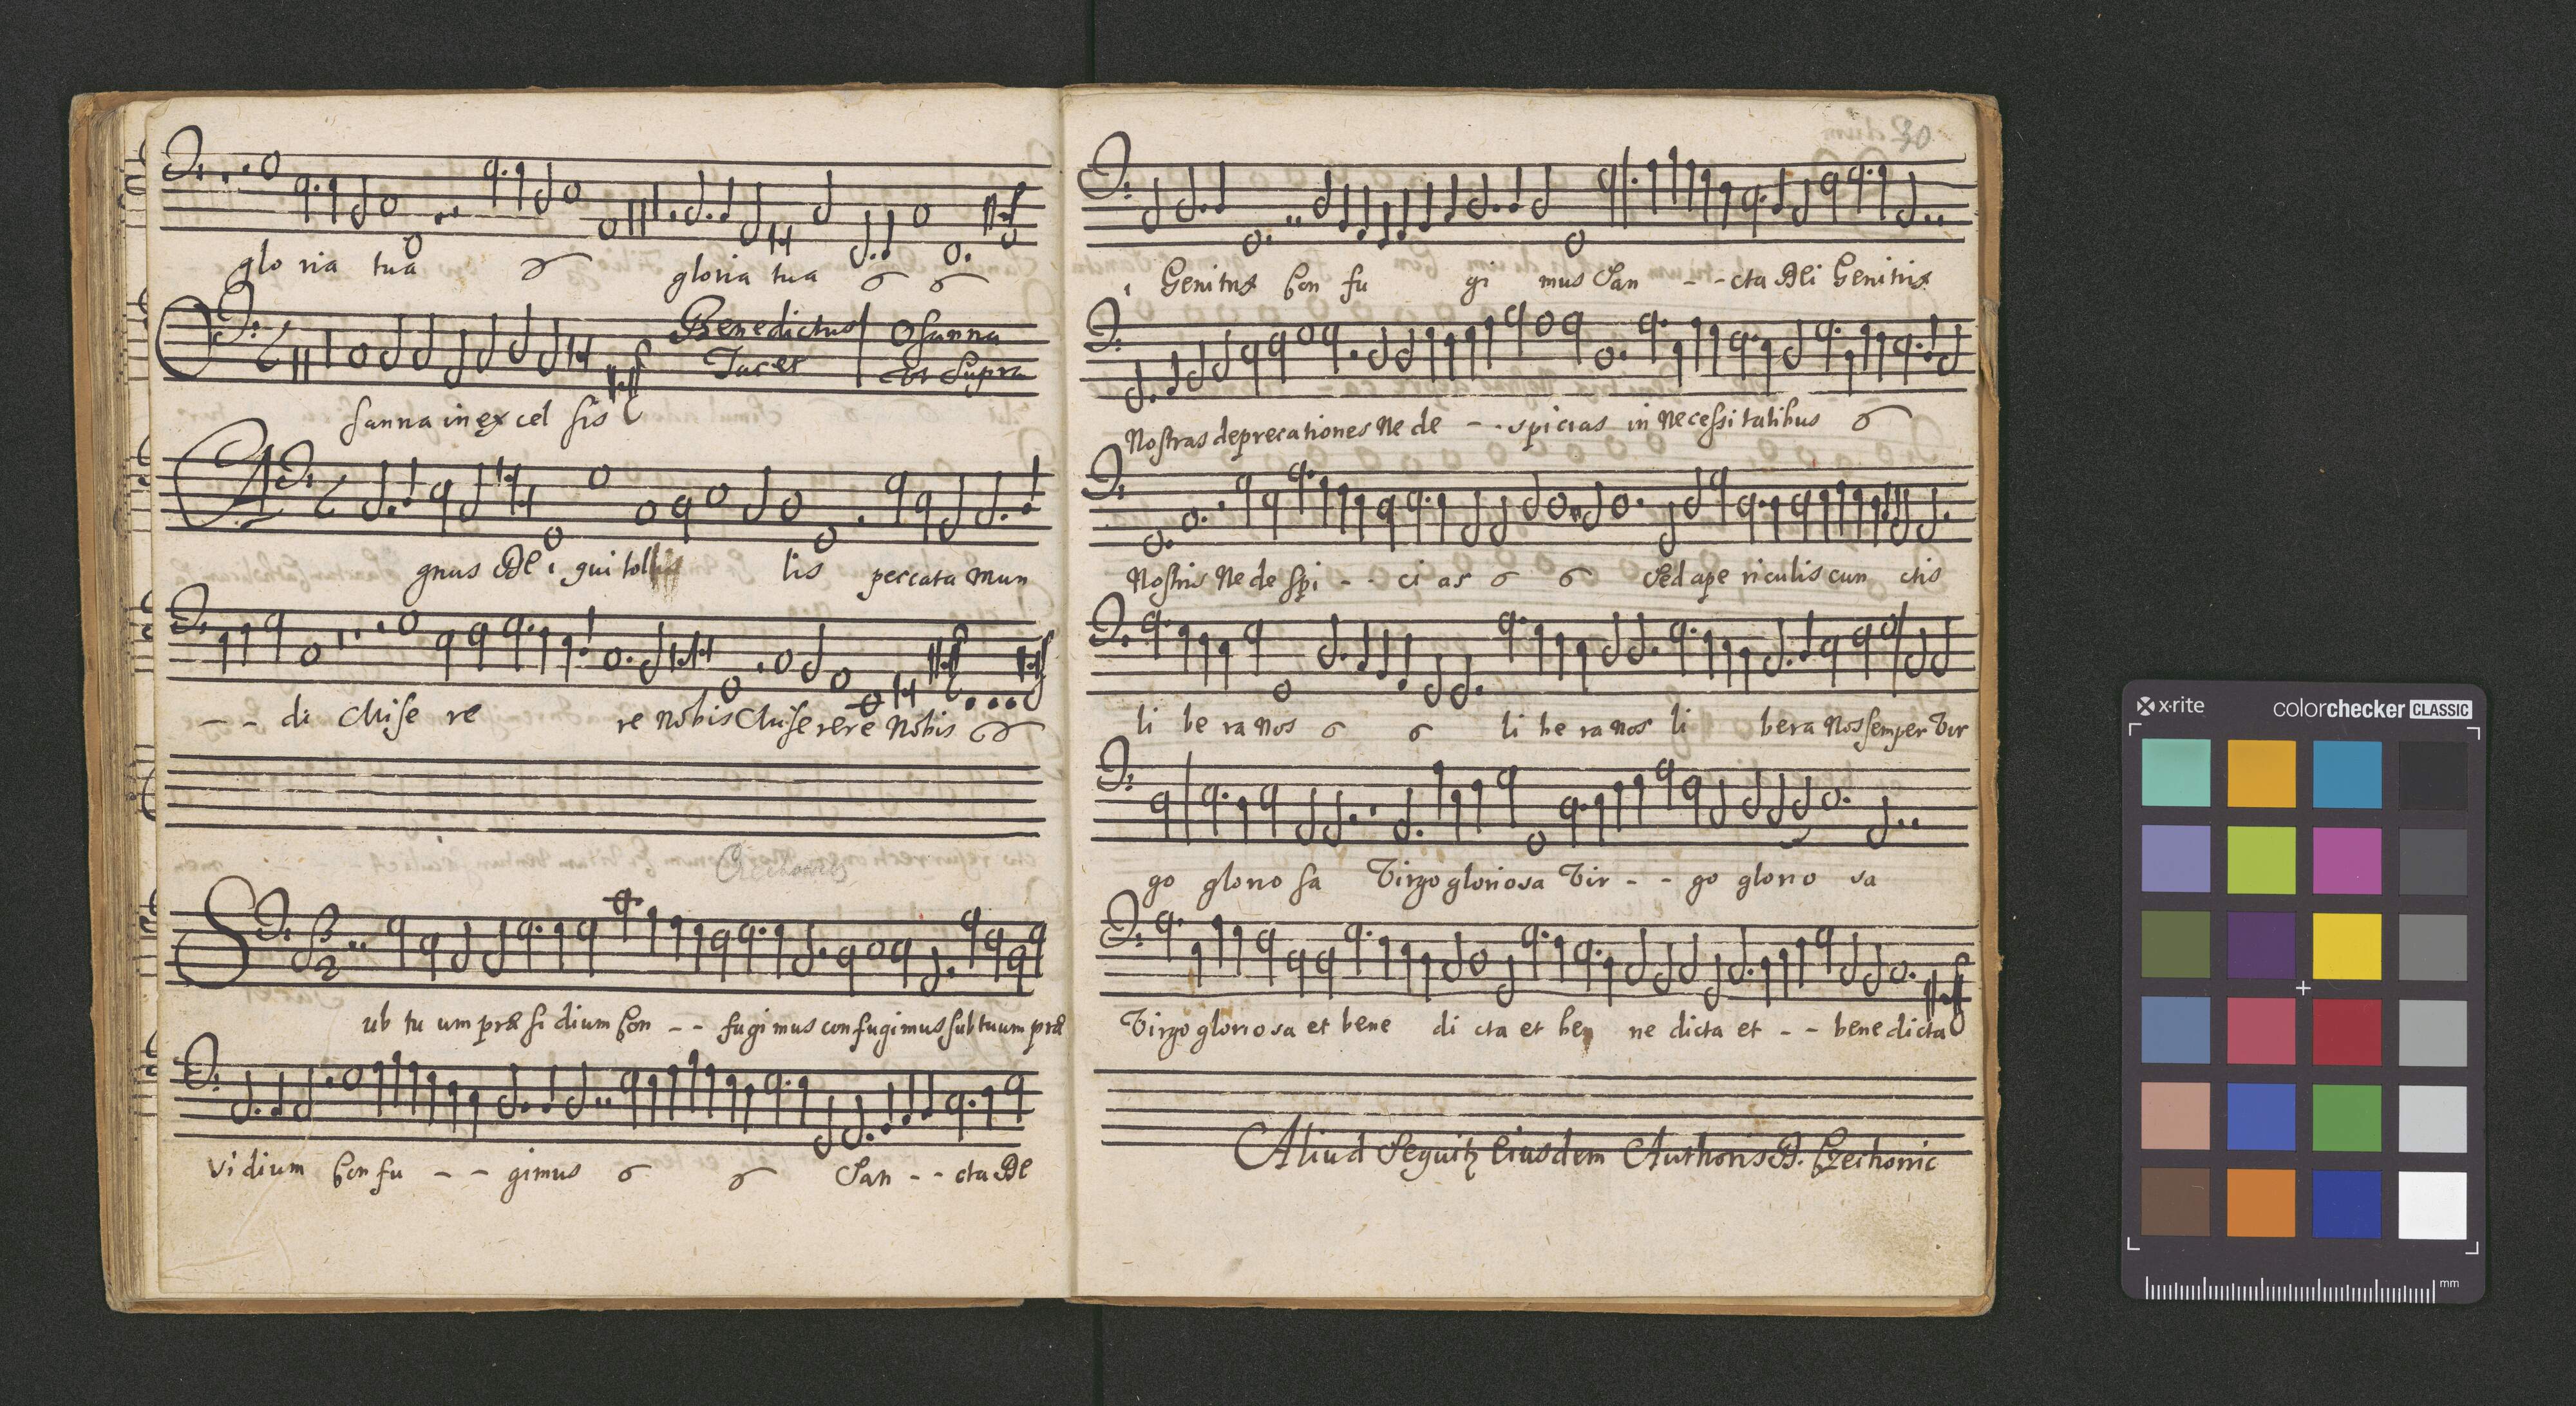 glo ria tua gloria tua
Benedictus Osanna
Tacet Vt Supra
sanna in ex cel sis
A
gnus De i qui tol lis peccata Mun
- - di Mise re re Nobis Miserere Nobis
S
ub tu um præ si dium Con - - fugi mus confugimus sub tuum præ
si dium Con fu - - gimus San - - cta De
30
i Genitrix Con fu gi mus San - - cta Dei Genitrix
Nostras deprecationes Ne de - - spicias in Necessitatibus
Nostris Ne de spi - - ci as Sed a pe riculis cun ctis
li be ra Nos li be ra Nos li bera Nos semper Vir
go glorio sa Virgo gloriosa Vir - - go glorio sa
Virgo gloriosa et bene di cta et be ne dicta et - - benedicta
Aliud Sequitur Eiusdem Authoris D.
x-rite
colorchecker CLASSIC
mm